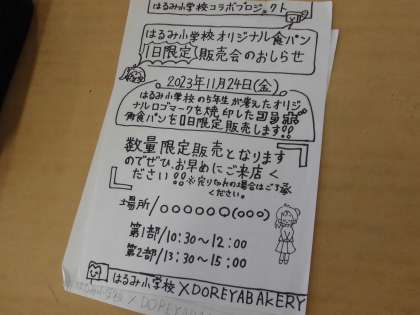 はるみ小学校コラボプロジェクト
はるみ小学校オリジナル食パン
1日限定販売会のおしらせ
2023年11月24日(金)
はるみ小学校の5年生が考えたオリジ
ナルロゴマークを焼印した
角食パンを1日限定販売します!!
数量限定販売となります
のでぜひ、お早めにご来店く
ださい!!※売り切れの場合はご了承
ください。
場所/○○○○○○(○○○)
第1部/10:30~12:00
第2部/13:30~15:00
はるみ小学校×DOREYABAKERY
はるみ小学校×DOREYABAKERY